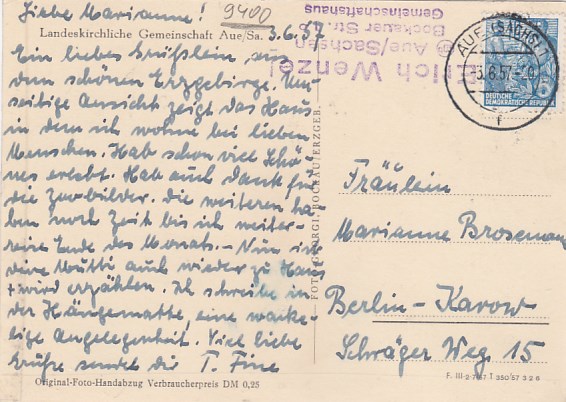 Liebe Marianne!
9400
Landeskirchliche Gemeinschaft Aue/Sa. 3.6.57
Ein liebes Grüßlein, aus
dem schönen Erzgebirge. Um-
seitige Ansicht zeigt das Haus
in dem ich wohne bei lieben
Menschen. Hab schon viel Schö-
nes erlebt. Hab auch Dank für
die Zoobilder. Die weiteren ha-
ben noch Zeit bis ich weiter-
reise Ende des Monats.- Nun ist
deine Mutti auch wieder zu Haus
+ wird erzählen. Ich schreibe in
der Hängematte, eine wacke-
lige Angelegenheit. Viel liebe
Grüße sendet dir T. Fine
Original-Foto-Handabzug Verbraucherpreis DM 0,25
FOTO-GEORGI, BOCKAU/ERZGEB.
Erich Wenzel
Aue/Sachsen
Bockauer Str.
Gemeinschaftshaus
AUE (SACHS)
-3.6.57
f
DEUTSCHE
DEMOKRATISCHE REPUBLIK
Fräulein
Marianne Brosemann
Berlin-Karow
Schräger Weg 15
F. III-2-7-17 T 350/57 3 2 6